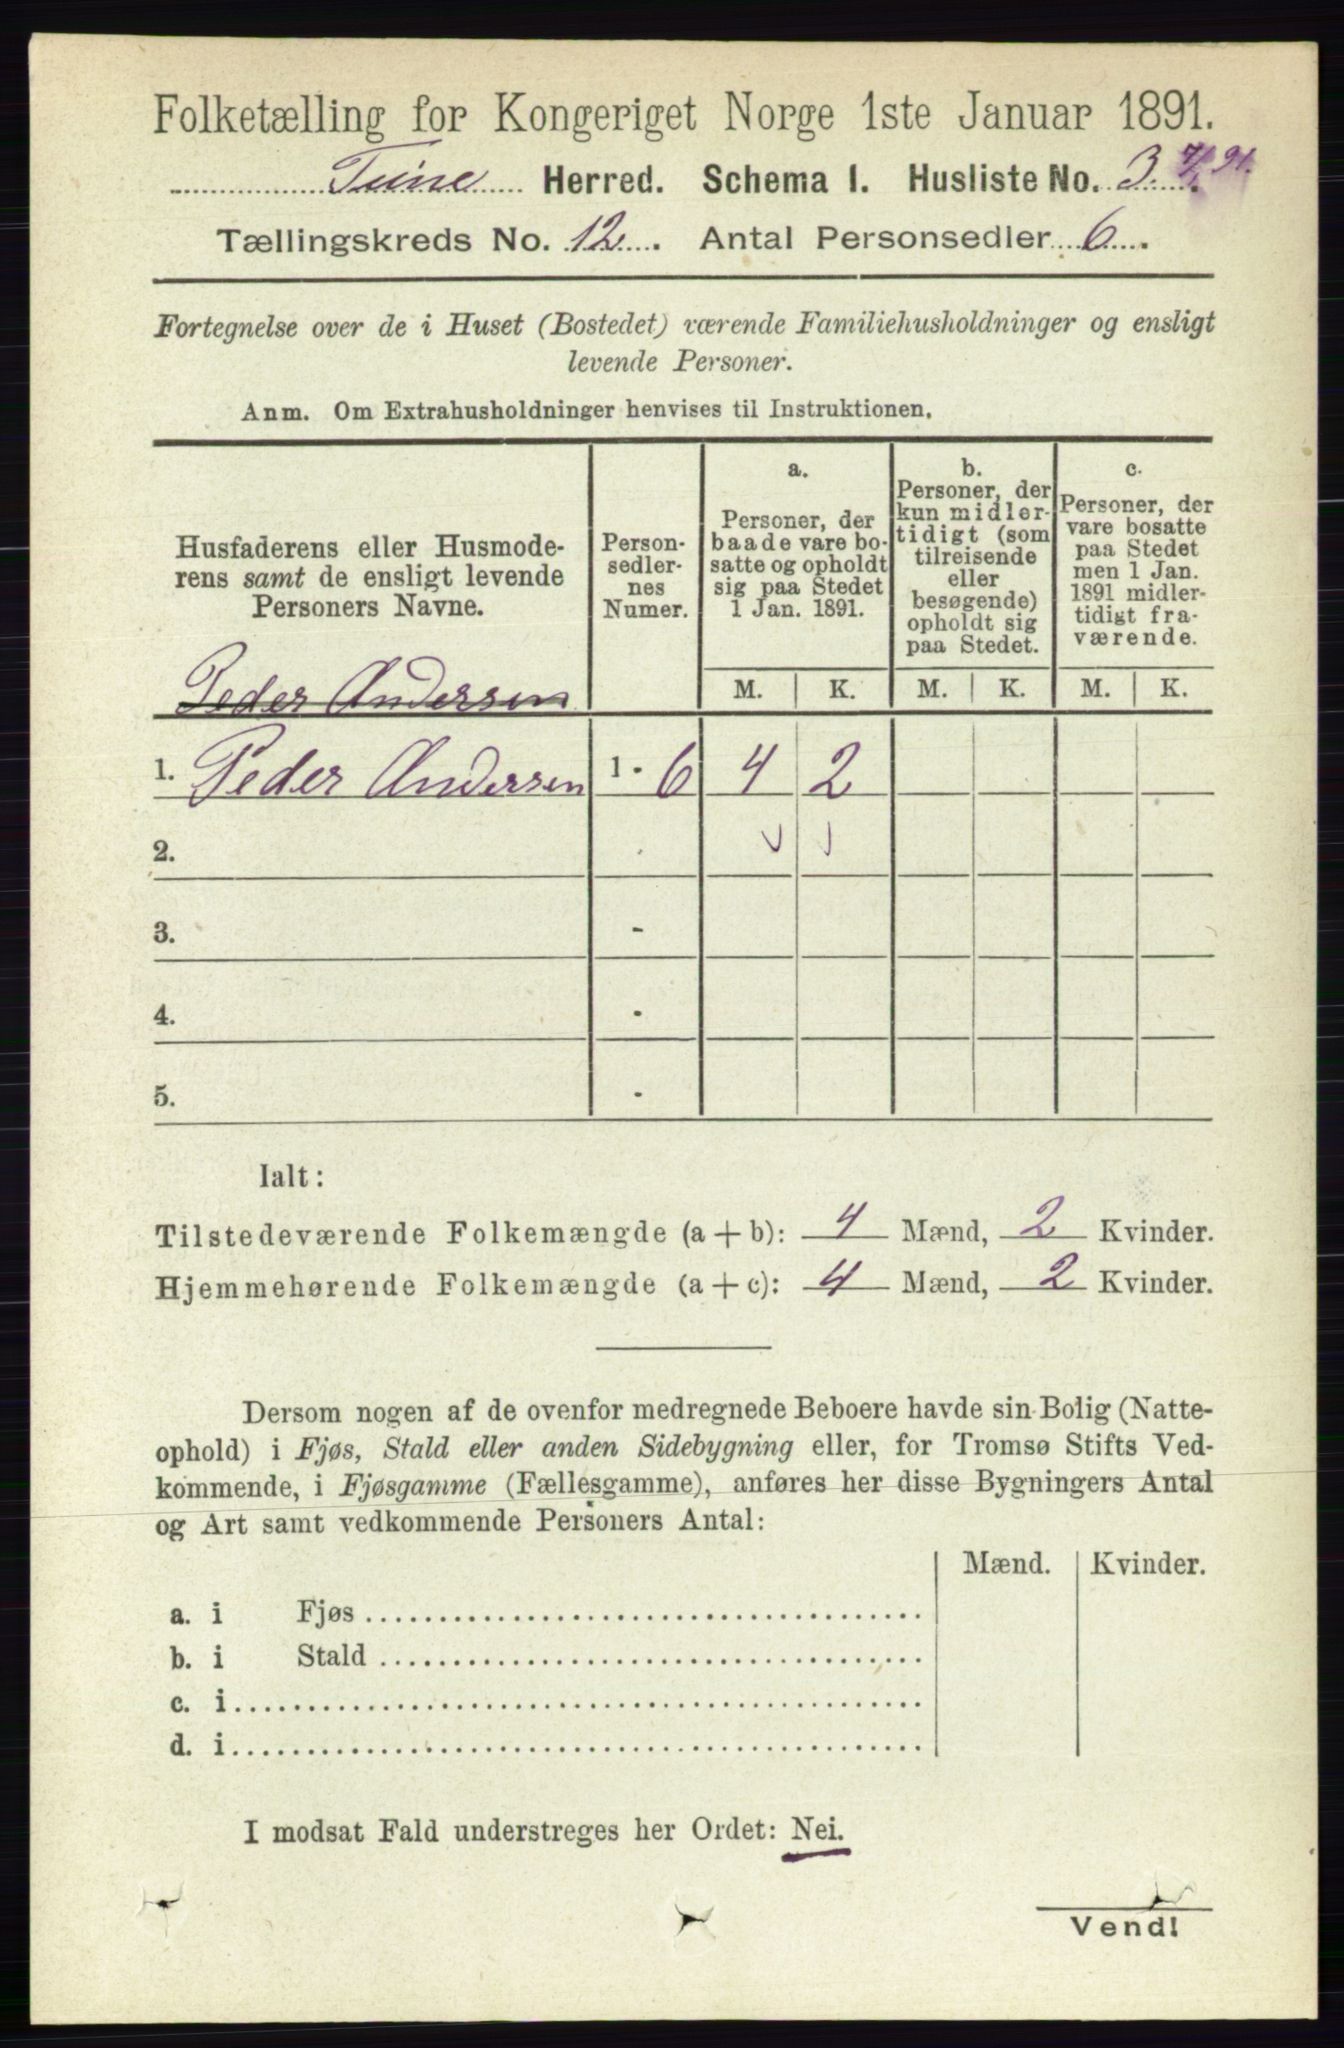 Folketælling for Kongeriget Norge 1ste Januar 1891.
Tune Herred. Schema I. Husliste No. 3
Tællingskreds No. 12. Antal Personsedler 6.
Fortegnelse over de i Huset (Bostedet) værende Familiehusholdninger og ensligt
levende Personer.
Anm. Om Extrahusholdninger henvises til Instruktionen.
Husfaderens eller Husmode-
rens samt de ensligt levende
Personers Navne.
Peder Andersen
Person-
sedler-
nes
Numer.
a.
Personer, der
baade vare bo-
satte og opholdt
sig paa Stedet
1 Jan. 1891.
M. K.
b.
Personer, der
kun midler-
tidigt (som
tilreisende
eller
besøgende)
opholdt sig
paa Stedet.
M. K.
c.
Personer, der
vare bosatte
paa Stedet
men 1 Jan.
1891 midler-
tidigt fra-
værende.
M. K.
1. Peder Andersen 1 - 6 4 2
2.
3. -
4. -
5. -
Ialt:
Tilstedeværende Folkemængde (a + b): 4 Mænd, 2 Kvinder.
Hjemmehørende Folkemængde (a + c): 4 Mænd, 2 Kvinder.
Dersom nogen af de ovenfor medregnede Beboere havde sin Bolig (Natte-
ophold) i Fjøs, Stald eller anden Sidebygning eller, for Tromsø Stifts Ved-
kommende, i Fjøsgamme (Fællesgamme), anføres her disse Bygningers Antal
og Art samt vedkommende Personers Antal:
Mænd. Kvinder.
a. i Fjøs
b. i Stald
c. i
d. i
I modsat Fald understreges her Ordet: Nei.
Vend!